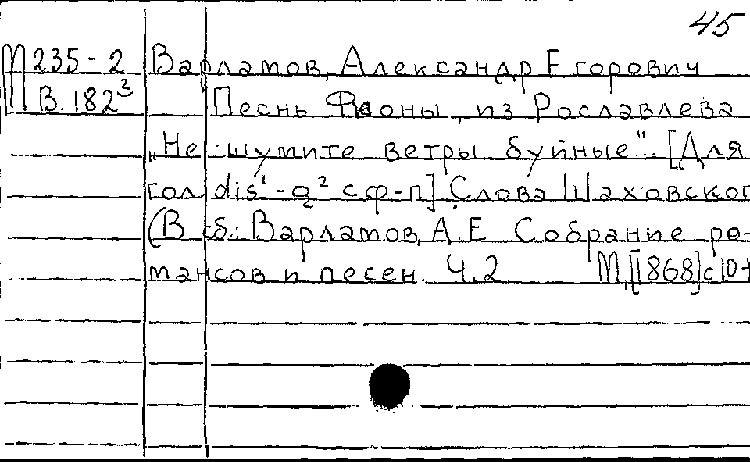 45
М 235-2 Варламов, Александр Егорович
В.182³ Песнь Феоны, из Рославлева
„Не шумите ветры буйные". [Для
гол. dis¹-g² с ф-п]. Слова Шаховског
(В сб.: Варламов, А.Е. Собрание ро-
мансов и песен. Ч.2 М,[1868]